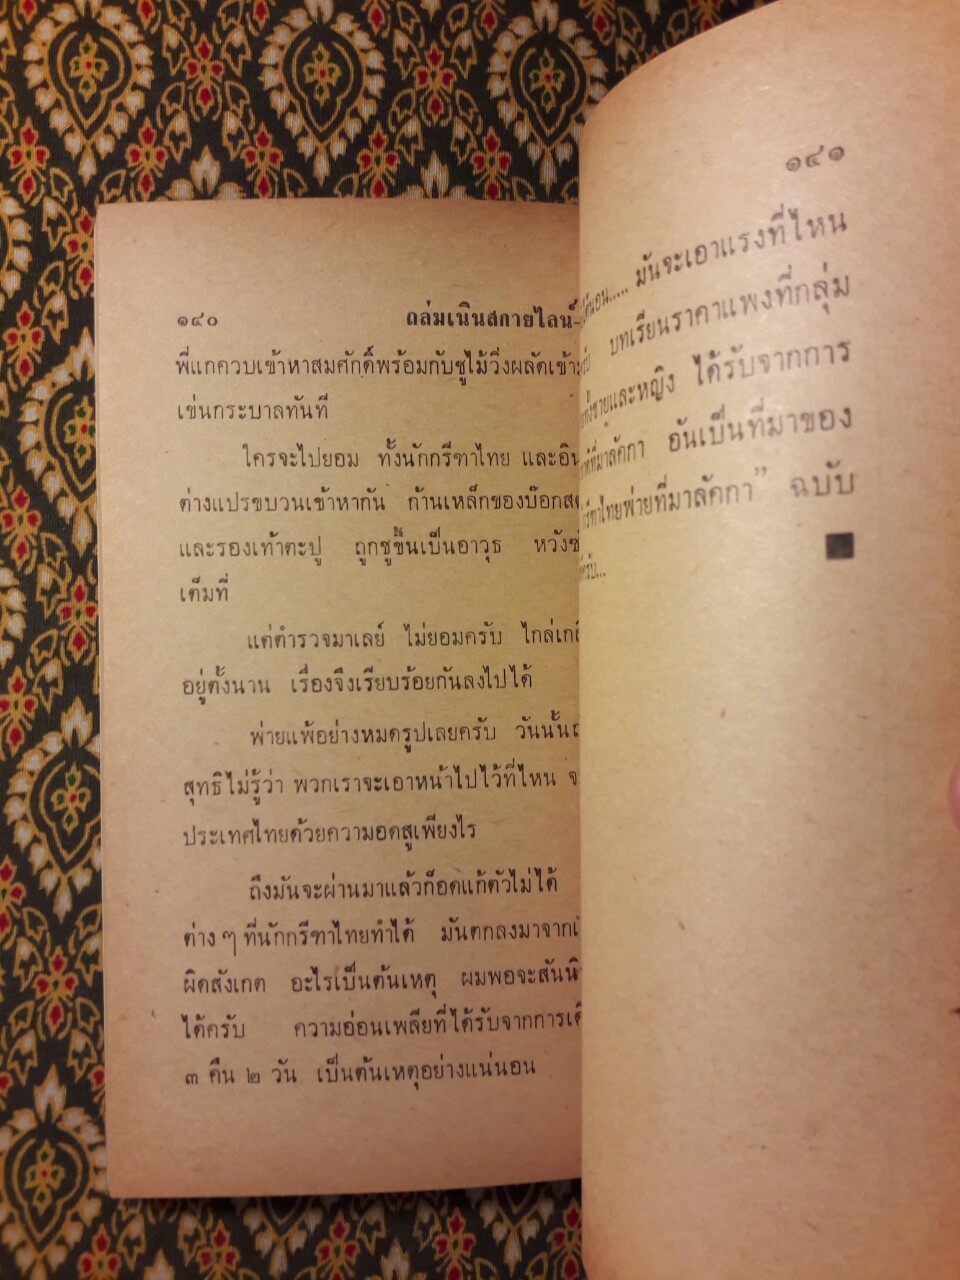 ๑๔๐ ถล่มเนินสกายไลน์
พี่แกควบเข้าหาสมศักดิ์พร้อมกับชูไม้วิ่งผลัดเข้า
เข่นกระบาลทันที
ใครจะไปยอม ทั้งนักกรีฑาไทย และอิน
ต่างแปรขบวนเข้าหากัน ก้านเหล็กของบ๊อกส
และรองเท้าตะปู ถูกชูขึ้นเป็นอาวุธ หวัง
เต็มที่
แต่ตำรวจมาเลย์ ไม่ยอมครับ ไกล่เกลี่
อยู่ตั้งนาน เรื่องจึงเรียบร้อยกันลงไปได้
พ่ายแพ้อย่างหมดรูปเลยครับ วันนั้น
สุทธิไม่รู้ว่า พวกเราจะเอาหน้าไปไว้ที่ไหน จ
ประเทศไทยด้วยความอดสูเพียงไร
ถึงมันจะผ่านมาแล้วก็อดแก้ตัวไม่ได้
ต่าง ๆ ที่นักกรีฑาไทยทำได้ มันตกลงมาจาก
ผิดสังเกต อะไรเป็นต้นเหตุ ผมพอจะสันนิ
ได้ครับ ความอ่อนเพลียที่ได้รับจากการเดิ
๓ คืน ๒ วัน เป็นต้นเหตุอย่างแน่นอน
๑๔๑
นอน..... มันจะเอาแรงที่ไหน
บทเรียนราคาแพงที่กลุ่ม
ชายและหญิง ได้รับจากการ
ที่มาลัคกา อันเป็นที่มาของ
กรีฑาไทยพ่ายที่มาลัคกา” ฉบับ
ครับ...